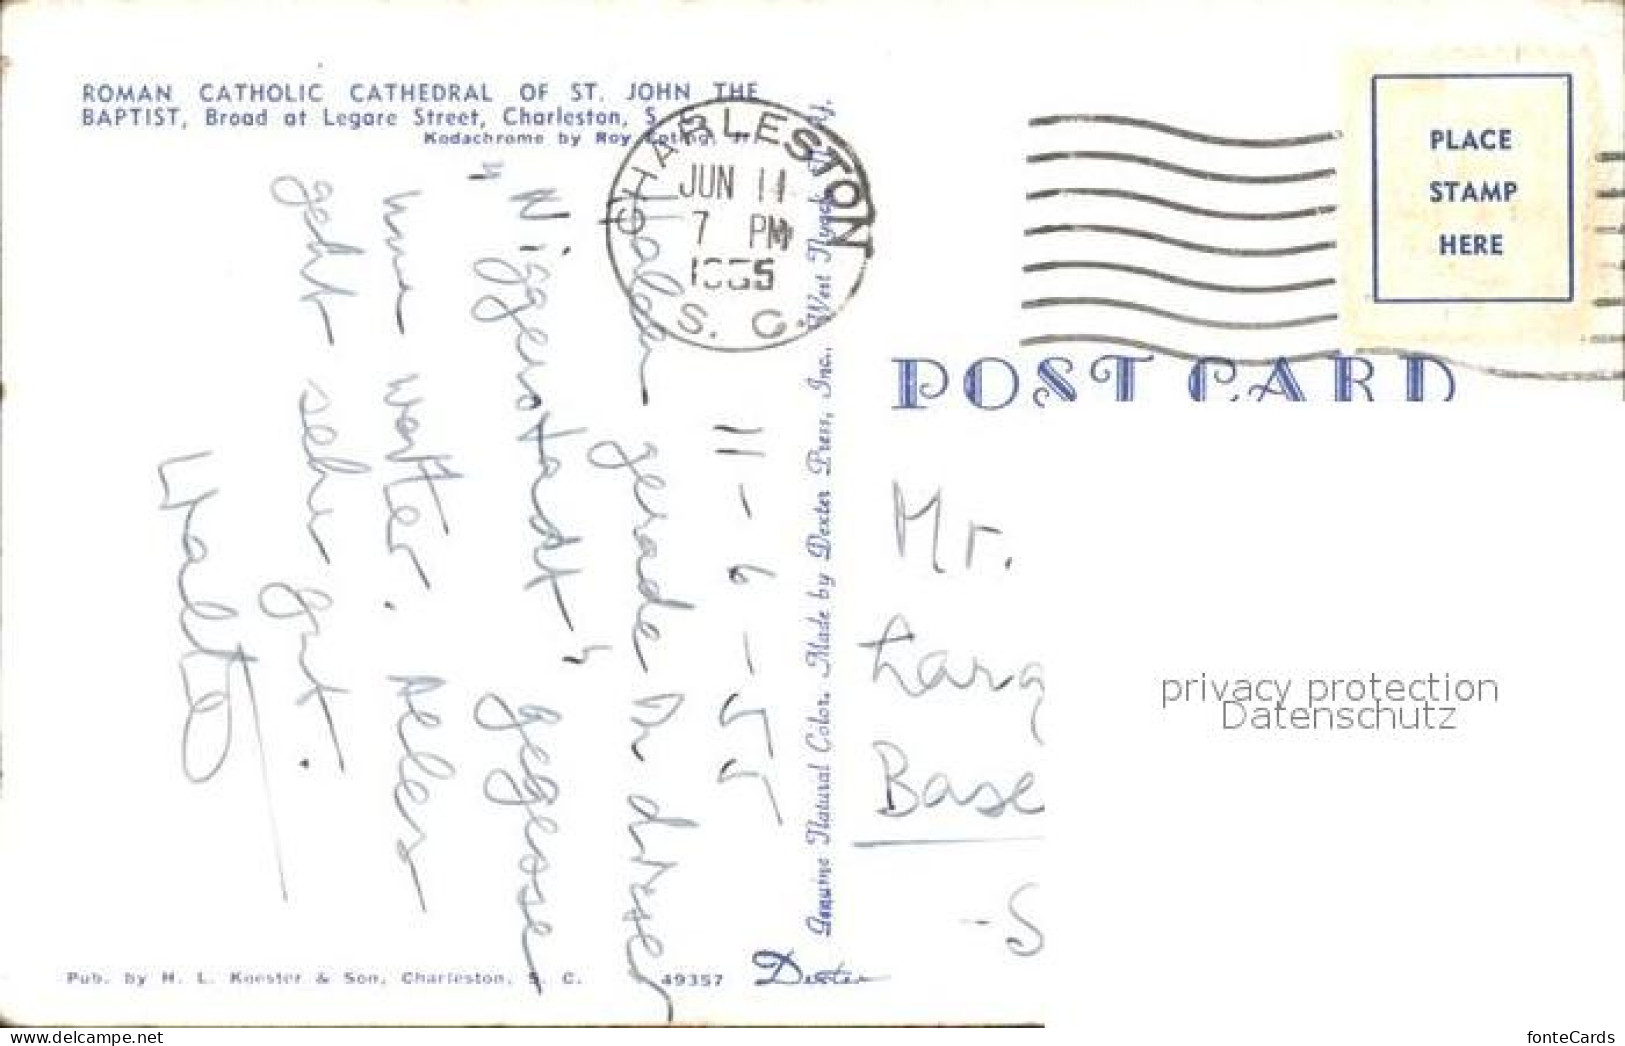 ROMAN CATHOLIC CATHEDRAL OF ST. JOHN THE
BAPTIST, Broad at Legare Street, Charleston, S.
Kodachrome by Roy
CHARLESTON
JUN 11
7 PM
S. C.
PLACE
STAMP
HERE
POST CARD
11-6-55
gerade in dieser
"Niggerstadt" gegessen
und weiter. Alles
geht sehr gut.
Walt
Genuine Natural Color. Made by Dexter Press, Inc., West Nyack, N. Y.
Mr.
Larg
Base
-S
privacy protection
Datenschutz
Pub. by H. L. Koester & Son, Charleston, S. C.
49357
Dexter
fonteCards